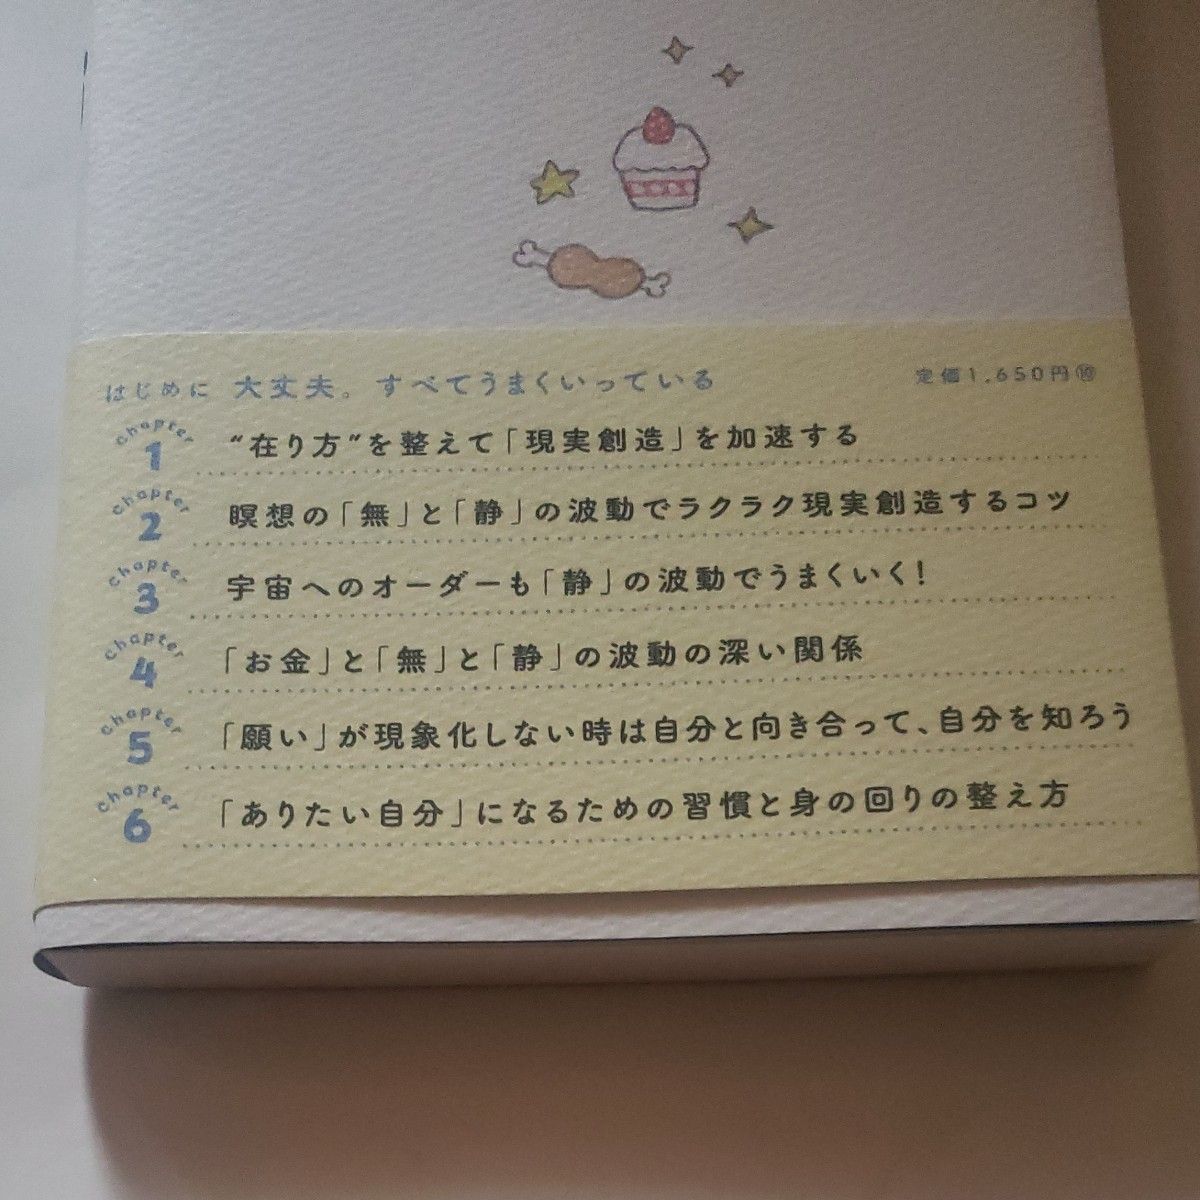 はじめに 大丈夫。すべてうまくいっている
定価1,650円⑩
chapter 1 “在り方”を整えて「現実創造」を加速する
chapter 2 瞑想の「無」と「静」の波動でラクラク現実創造するコツ
chapter 3 宇宙へのオーダーも「静」の波動でうまくいく!
chapter 4 「お金」と「無」と「静」の波動の深い関係
chapter 5 「願い」が現象化しない時は自分と向き合って、自分を知ろう
chapter 6 「ありたい自分」になるための習慣と身の回りの整え方